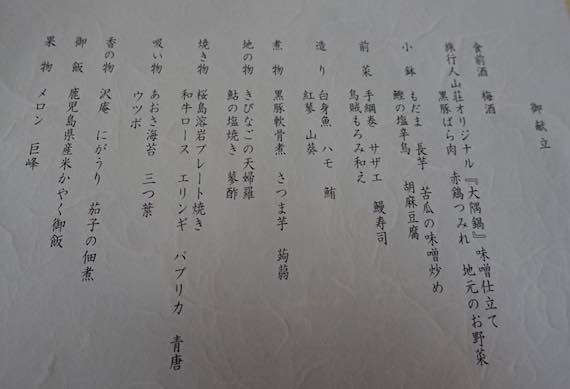 御献立
食前酒 梅酒
旅行人山荘オリジナル『大隅鍋』味噌仕立て
黒豚ばら肉 赤鶏つみれ 地元のお野菜
小鉢 もだま 長芋 苦瓜の味噌炒め
鰹の塩辛 胡麻豆腐
前菜 手綱巻 サザエ 鰻寿司
烏賊もろみ和え
造り 白身魚 ハモ 鮪
紅蓼 山葵
煮物 黒豚軟骨煮 さつま芋 蒟蒻
地の物 きびなごの天婦羅
鮎の塩焼き 蓼酢
焼き物 桜島溶岩プレート焼き
和牛ロース エリンギ パプリカ 青唐
吸い物 あおさ海苔 三つ葉
ウツボ
香の物 沢庵 にがうり 茄子の佃煮
御飯 鹿児島県産米かやく御飯
果物 メロン 巨峰